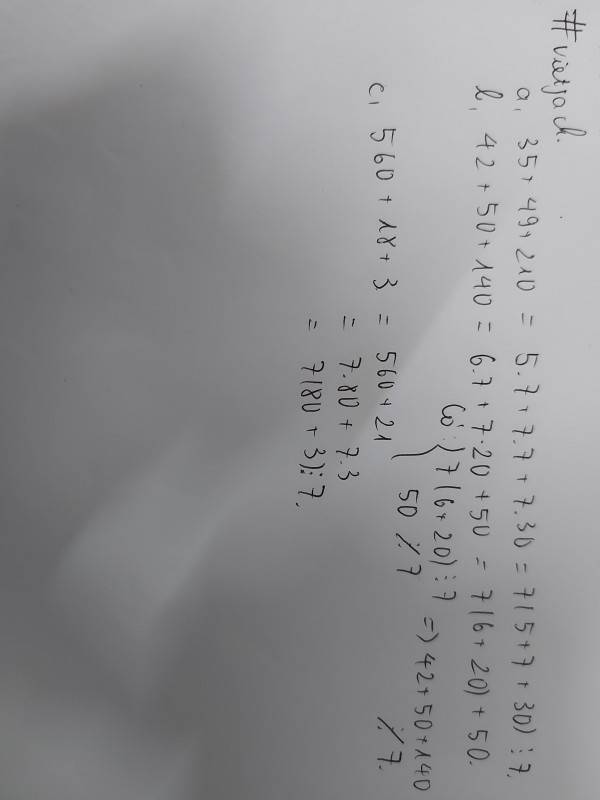 #vietjack.
a, 35 + 49 + 210 = 5.7 + 7.7 + 7.30 = 7(5+7+30) ⋮ 7.
b, 42 + 50 + 140 = 6.7 + 7.20 + 50 = 7(6+20) + 50.
Có: { 7(6+20) ⋮ 7
50 ⋮̸ 7 => 42+50+140 ⋮̸ 7.
c, 560 + 18 + 3 = 560 + 21
= 7.80 + 7.3
= 7(80 + 3) ⋮ 7.